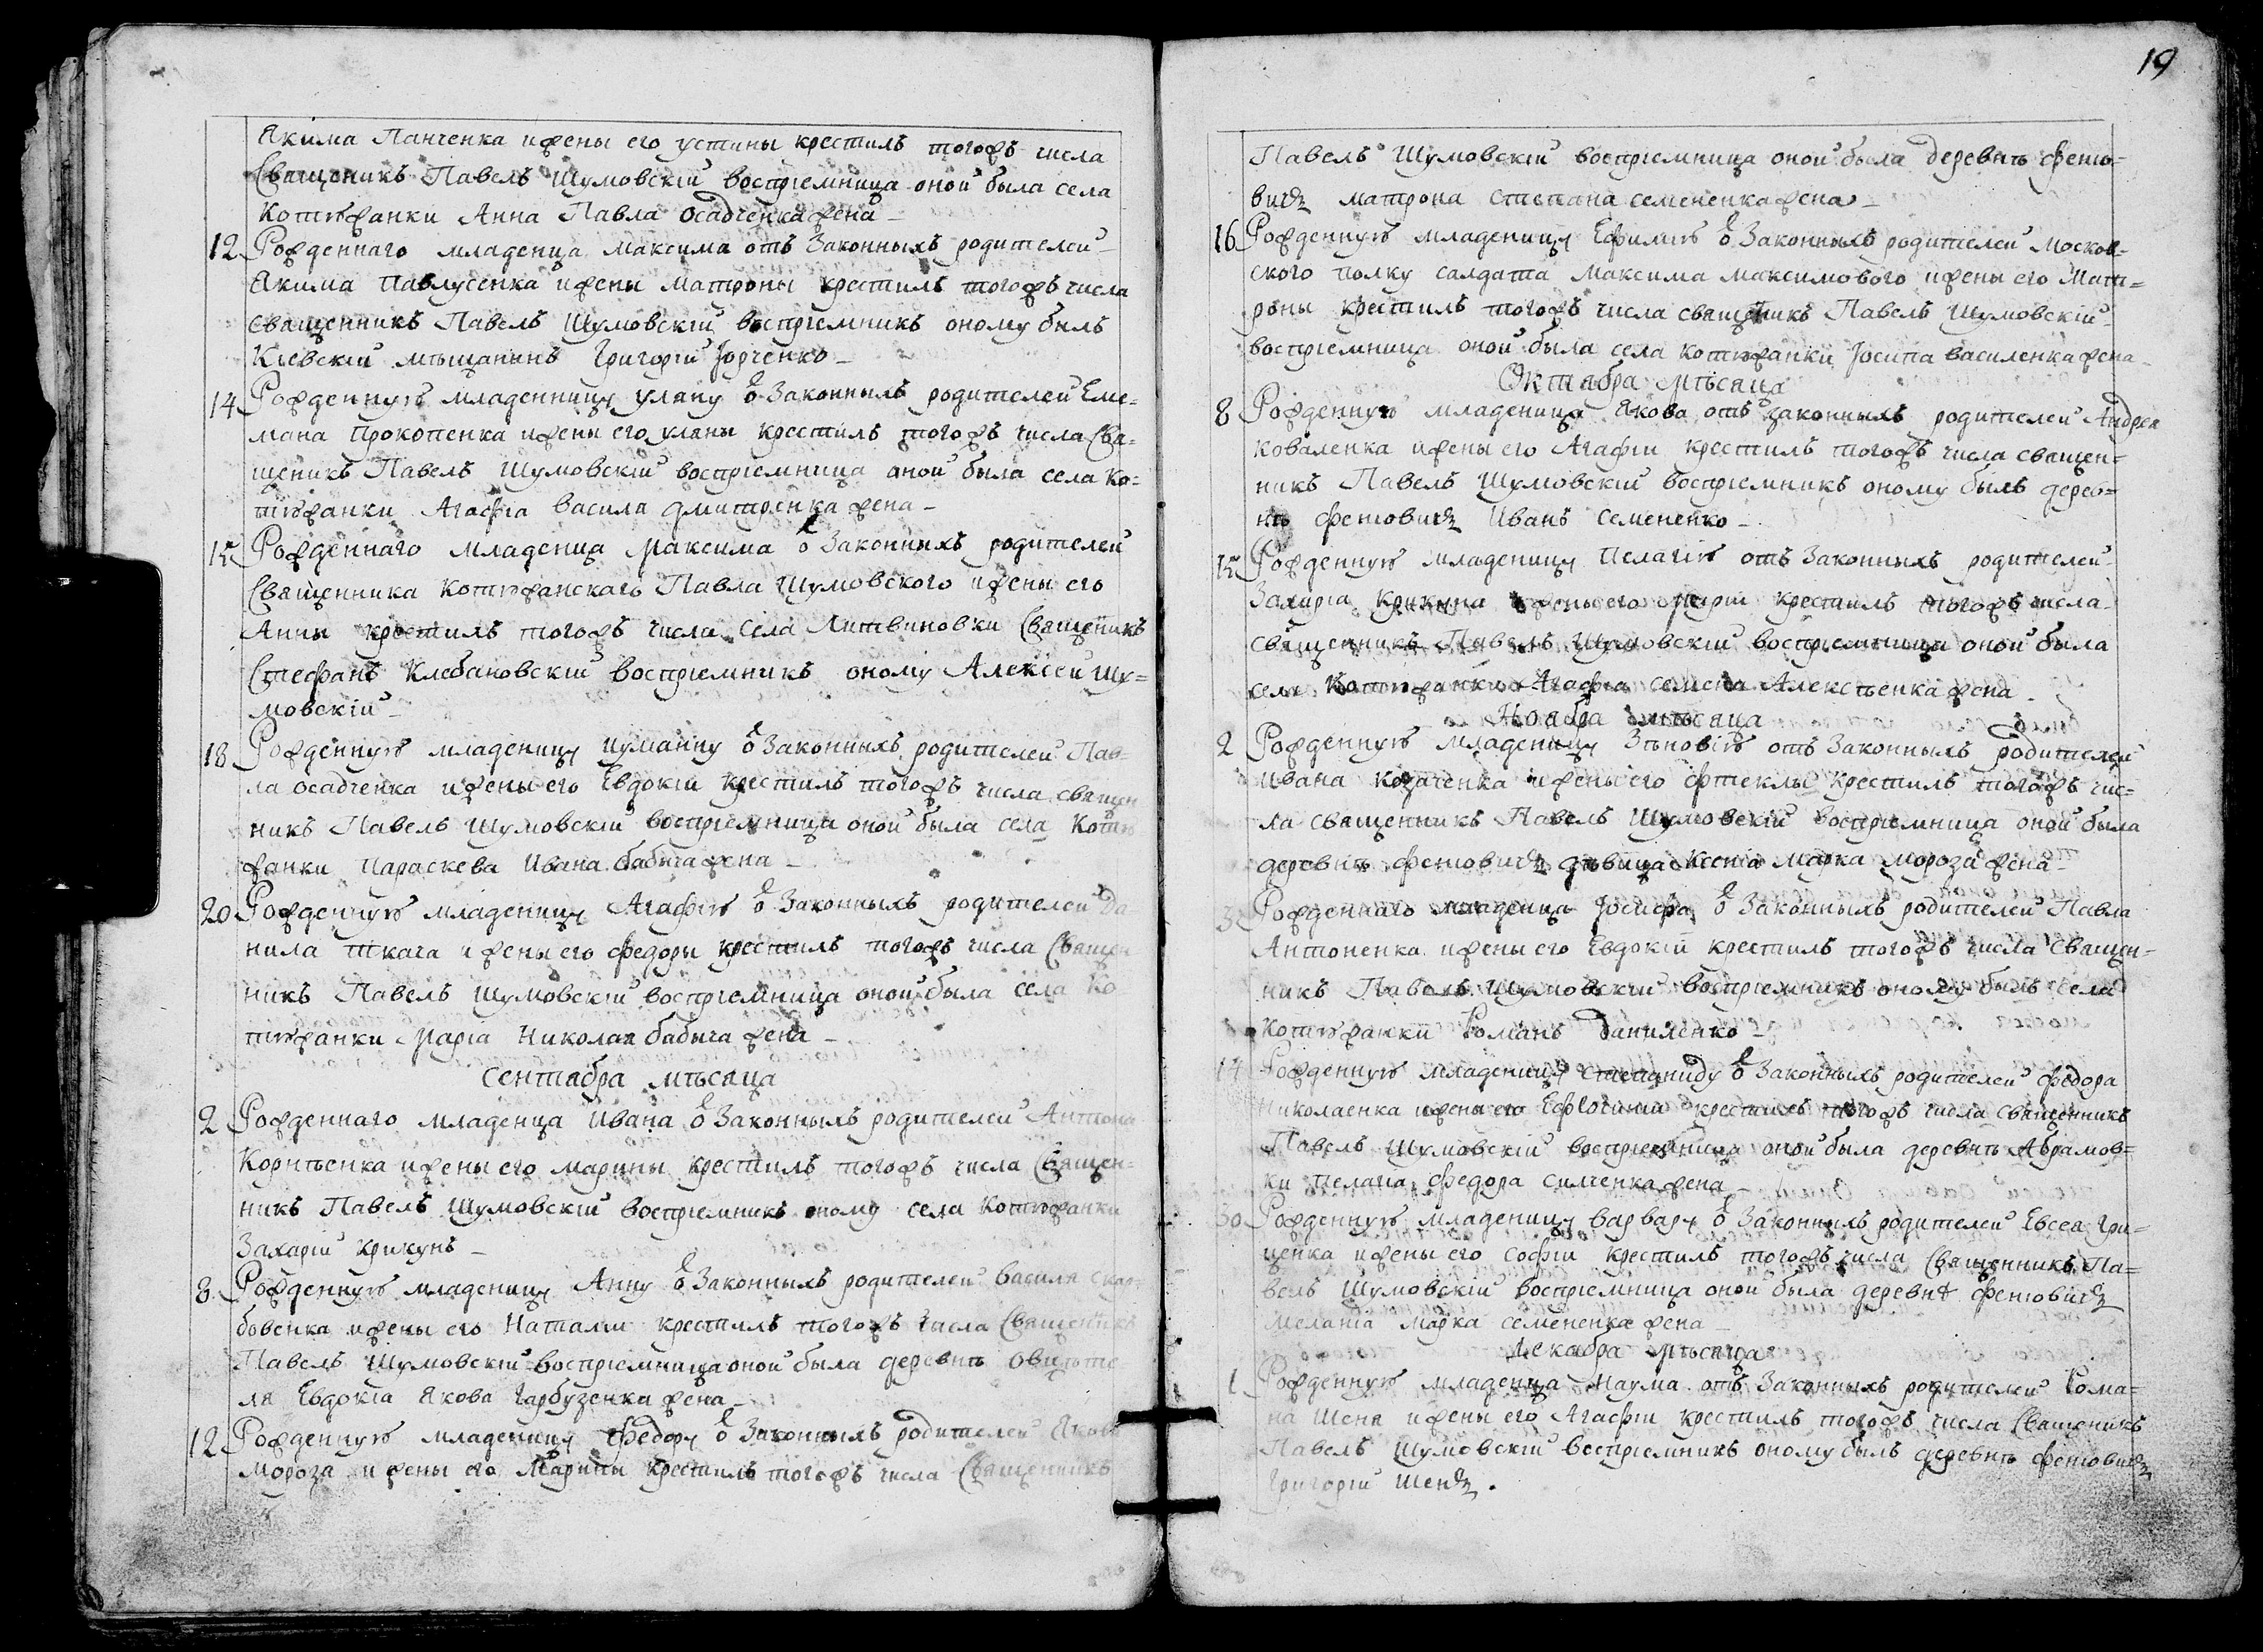 Якима Панченка и жены его устины крестилъ тогожъ числа
Священикъ Павелъ Шумовскїй воспрїемница оной была села
Котюжанки Анна Павла осадченка жена
12 Рожденнаго младенца максима отъ Законныхъ родителей
Якима Павлусенка и жены матроны крестилъ тогожъ числа
священникъ Павелъ Шумовскїй воспрїемникъ оному былъ
Кїевскїй мѣщанинъ Григорїй
14 Рожденную младеницу уляну ѿ Законныхъ родителей Еме-
ляна Прокопенка и жены его уляны крестилъ тогожъ числа Свя-
щеникъ Павелъ Шумовскїй воспрїемница оной была села Ко-
тюжанки Агафїа василя дмитренка жена
15 Рожденнаго младенца максима ѿ Законныхъ родителей
Священника Котюжанскаго Павла Шумовского и жены его
Анны крестилъ тогожъ числа села Литвиновки Священикъ
Стефанъ Клебановскїй воспрїемникъ оному Алексей Шу-
мовскїй
18 Рожденную младеницу иулїанну ѿ Законныхъ родителей Пав-
ла осадченка и жены его Евдокїи крестилъ тогожъ числа священ
никъ Павелъ Шумовскїй воспрїемница оной была села Котю
жанки Параскева Ивана бабича жена
20 Рожденную младеницу Агафїю ѿ Законныхъ родителей Да
нила ткача и жены его федоры крестилъ тогожъ числа Священ
никъ Павелъ Шумовскїй воспрїемница оной была села Ко
тюжанки марїа Николая бабича жена
Сентабра мѣсяца
2 Рожденнаго младенца Ивана ѿ Законныхъ родителей Антона
Корнѣенка и жены его марины крестилъ тогожъ числа Священ-
никъ Павелъ Шумовскїй воспрїемникъ оному села Котюжанки
Захарїй Крикунъ
8 Рожденную младеницу Анну ѿ Законныхъ родителей василя
бовенка и жены его Наталїи крестилъ тогожъ числа Священикъ
Павелъ Шумовскїй воспрїемница оной была деревнѣ
ля Евдокїа Якова Гарбузенка жена
12 Рожденную младеницу федору ѿ Законныхъ родителей Якова
мороза и жены его Марины крестилъ тогожъ числа Священникъ
19
Павелъ Шумовскїй воспрїемница оной была деревнѣ феню-
вичъ матрона степана семененка жена
16 Рожденную младеницу Ефимїю ѿ Законныхъ родителей Москов-
ского полку салдата максима максимового и жены его Мат-
роны крестилъ тогожъ числа священикъ Павелъ Шумовскїй
воспрїемница оной была села котюжанки Іосипа василенка жена
Октабра мѣсяца
8 Рожденную младенца Якова отъ законныхъ родителей Андрея
Коваленка и жены его Агафїи крестилъ тогожъ числа священ-
никъ Павелъ Шумовскїй воспрїемникъ оному былъ дерев-
нѣ фенювичъ Иванъ семененко
15 Рожденную младеницу Пелагїю отъ Законныхъ родителей
Захарїа Крикуна и жены его марїи крестилъ тогожъ числа
священникъ Павелъ Шумовскїй воспрїемница оной была
села Котюжанки Агафїа семена Алексѣенка жена
Ноабра мѣсяца
2 Рожденную младеницу Зѣновїю отъ Законныхъ родителей
Ивана Козаченка и жены его фтеклы крестилъ тогожъ чис-
ла священникъ Павелъ Шумовскїй воспрїемница оной была
деревнѣ фенювичъ дѣвица Ксенїа марка мороза жена
3 Рожденнаго младенца Іосифа ѿ Законныхъ родителей Павла
Антоненка и жены его Евдокїй крестилъ тогожъ числа Священ-
никъ Павелъ Шумовскїй воспрїемникъ оному былъ села
котюжанки Романъ Даниленко
Рожденную младеницу степаниду ѿ Законныхъ родителей федора
Николаенка и жены его крестилъ тогожъ числа священникъ
Павелъ Шумовскїй воспрїемница оной была деревнѣ Абрамов-
ки пелагїа федора силченка жена
30 Рожденную младеницу варвару ѿ Законныхъ родителей Евсея Гри-
ценка и жены его софїи крестилъ тогожъ числа Священникъ Па-
велъ Шумовскїй воспрїемница оной была деревнѣ фенювичъ
меланїа марка семененка жена
Декабра мѣсяца
1 Рожденную младенца Наума отъ Законныхъ родителей Рома-
на Шеня и жены его Агафїи крестилъ тогожъ числа Священикъ
Павелъ Шумовскїй воспрїемникъ оному былъ деревнѣ фенювичъ
Григорїй